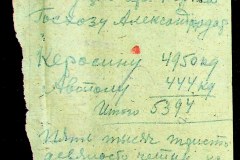 Госхозу Александродар
Керосину 4950 кг
Автолу 444 кг
Итого 5394
Пять тысяч триста
девяносто четыре кг